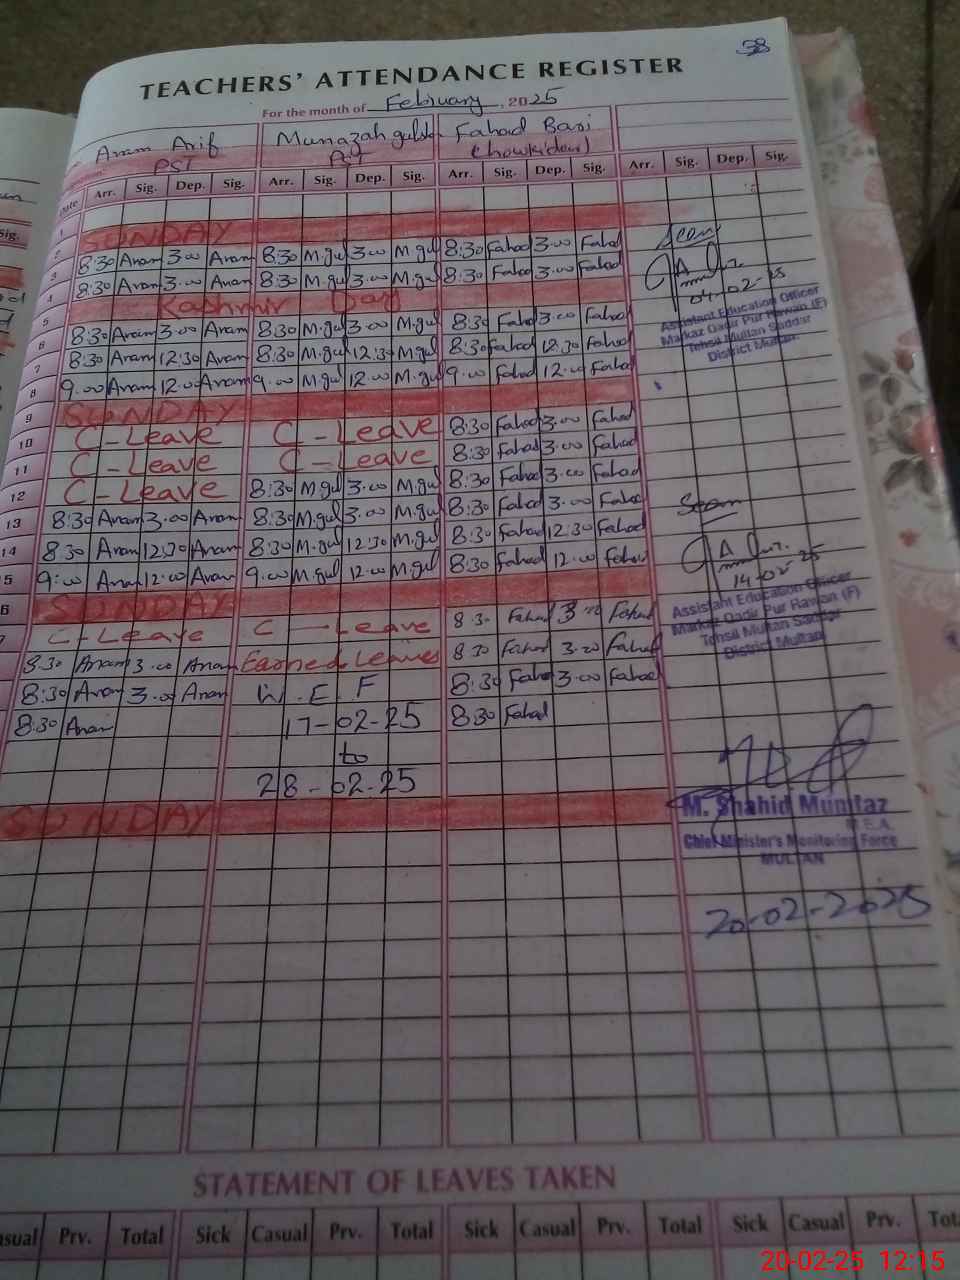 38
TEACHERS' ATTENDANCE REGISTER
For the month of February, 2025
Anam Arif Munazah Fahad
PST (Chowkidar)
Date Arr. Sig. Dep. Sig. Arr. Sig. Dep. Sig. Arr. Sig. Dep. Sig. Arr. Sig. Dep. Sig.
1
SUNDAY
2 8:30 Anam 3.00 Anam 8:30 M.gul 3.00 M.gul 8:30 Fahad 3.00 Fahad
3 8:30 Anam 3.00 Anam 8:30 M.gul 3.00 M.gul 8:30 Fahad 3.00 Fahad
4 Kashmir Day
5 8:30 Anam 3.00 Anam 8:30 M.gul 3.00 M.gul 8:30 Fahad 3.00 Fahad
6 8:30 Anam 12:30 Anam 8:30 M.gul 12:30 M.gul 8:30 Fahad 12.30 Fahad
7 9.00 Anam 12.00 Anam 9.00 M.gul 12.00 M.gul 9.00 Fahad 12.00 Fahad
8 SUNDAY
9 C-Leave C-Leave 8:30 Fahad 3.00 Fahad
10 C-Leave C-Leave 8:30 Fahad 3.00 Fahad
11 C-Leave 8:30 M.gul 3.00 M.gul 8:30 Fahad 3.00 Fahad
12 8:30 Anam 3.00 Anam 8:30 M.gul 3.00 M.gul 8:30 Fahad 3.00 Fahad
13 8:30 Anam 12:30 Anam 8:30 M.gul 12:30 M.gul 8:30 Fahad 12:30 Fahad
14 9:00 Anam 12.00 Anam 9.00 M.gul 12.00 M.gul 8:30 Fahad 12.00 Fahad
5 SUNDAY
6 C-Leave C-Leave 8:30 Fahad Fahad
7 8:30 Anam 3.00 Anam Earned Leaves 8:30 Fahad Fahad
8:30 Anam 3.00 Anam W.E.F 8:30 Fahad 3.00 Fahad
8:30 Anam 17-02-25 8:30 Fahad
to
28-02-25
SUNDAY
Seen
04-02-25
Assistant Education Officer
Markaz Qadir Pur Rawan (F)
Tehsil Multan Saddar
District Multan.
Seen
14-02-25
Assistant Education Officer
Markaz Qadir Pur Rawan (F)
Tehsil Multan Saddar
District Multan
M. Shahid Mumtaz
M.E.A.
Chief Minister's Monitoring Force
MULTAN
20-02-2025
STATEMENT OF LEAVES TAKEN
Casual Prv. Total Sick Casual Prv. Total Sick Casual Prv. Total Sick Casual Prv.
20-02-25 12:15